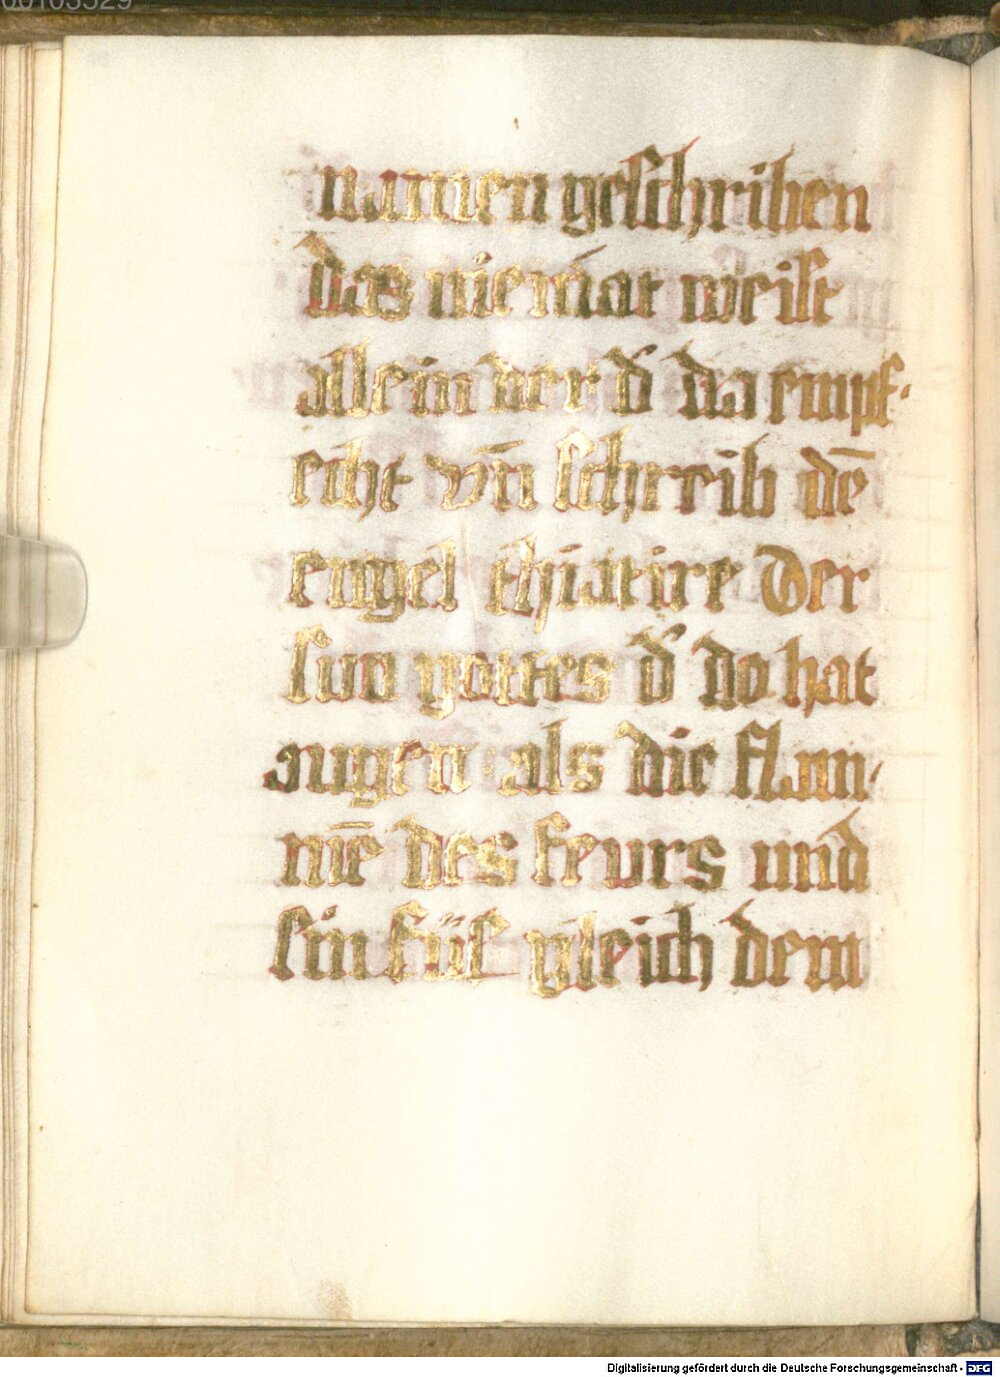 00103529
namen geschriben
das niemāt weist
allein wer d̄ da empf-
echt vn̄ schreib dē
engel thiatire der
sun gottes d̄ do hat
augen als die flam-
mē des feurs und
sin füſ gleich dem
Digitalisierung gefördert durch die Deutsche Forschungsgemeinschaft - DFG